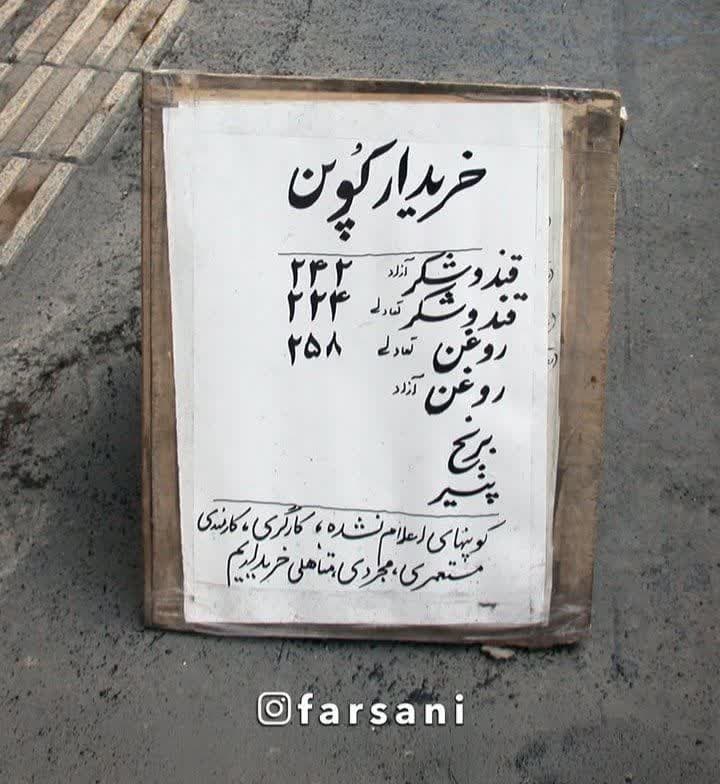 خریدار کُوپن
قند و شکر آزاد ۲۴۲
قند و شکر تعادلی ۲۲۴
روغن تعادلی ۲۵۸
روغن آزاد
برنج
پنیر
کوپنهای اعلام نشده، کارگری، کارمندی
مستمری، مجردی، متاهلی خریداریم
farsani